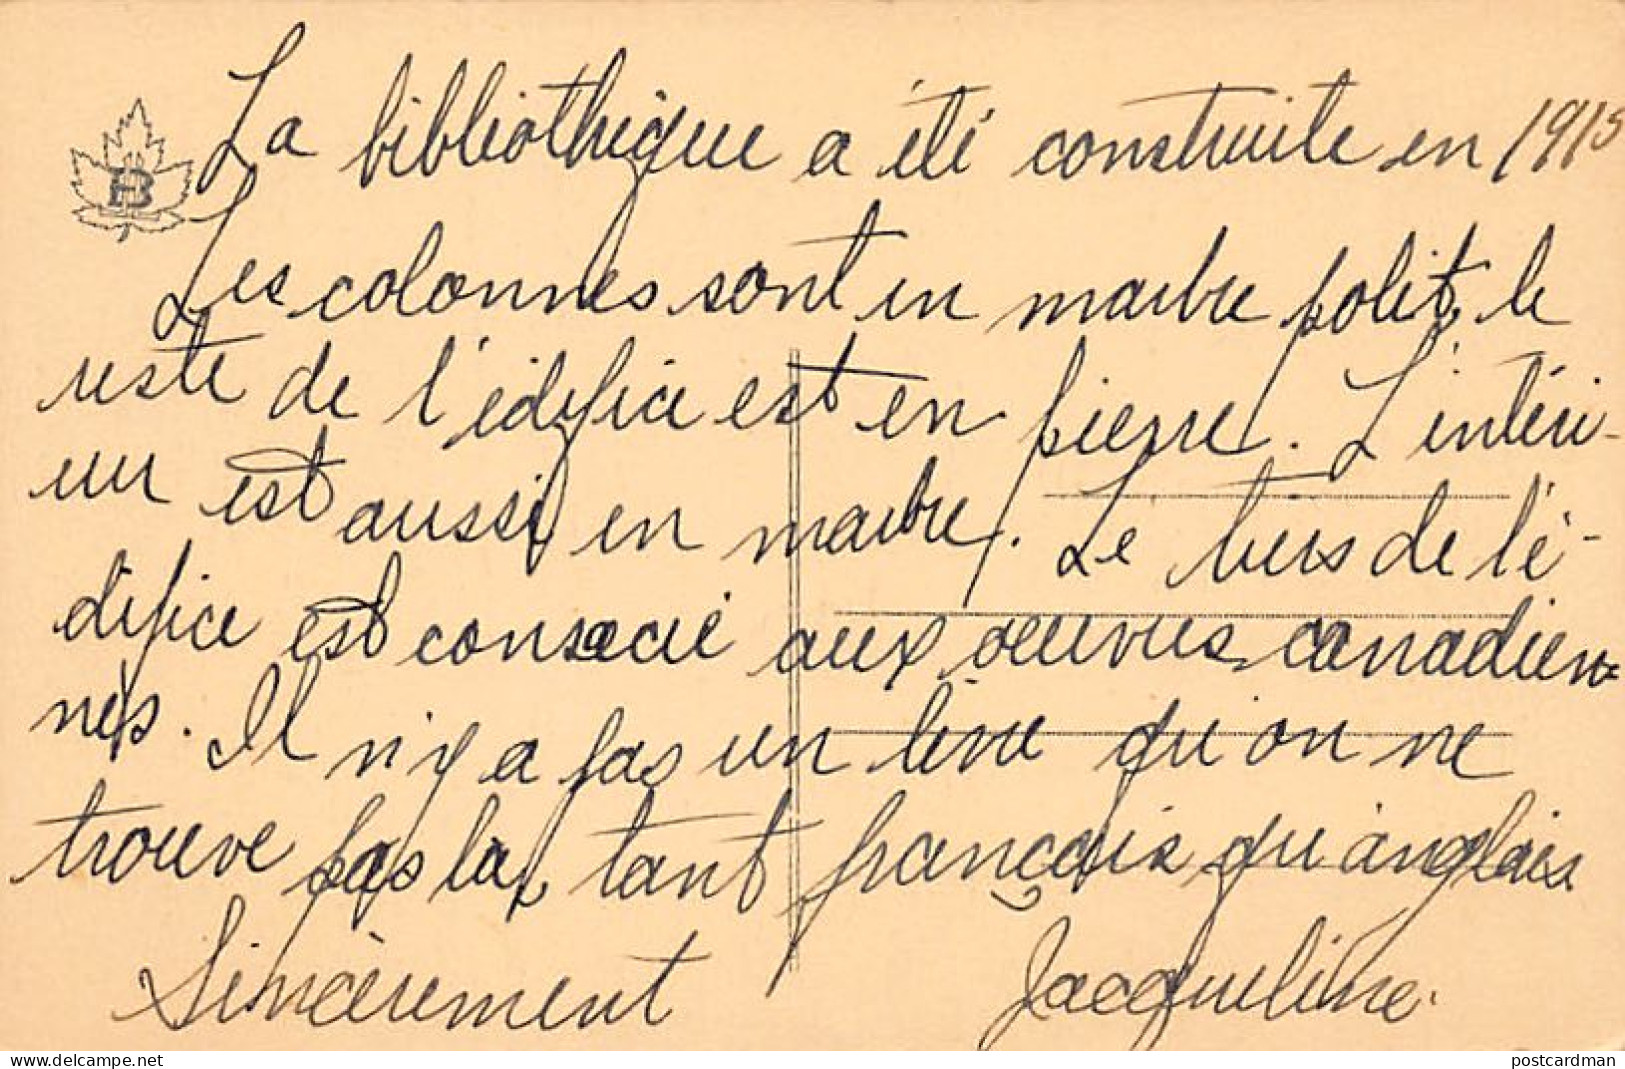 La bibliothèque a été construite en 1915
Les colonnes sont en marbre polit, le
reste de l'édifice est en pierre. L'intéri-
eur est aussi en marbre. Le tiers de l'é-
difice est consacré aux oeuvres canadien-
nes. Il n'y a pas un livre qu'on ne
trouve pas là, tant français qu'anglais
Sincèrement Jacqueline.
HB
www.delcampe.net postcardman